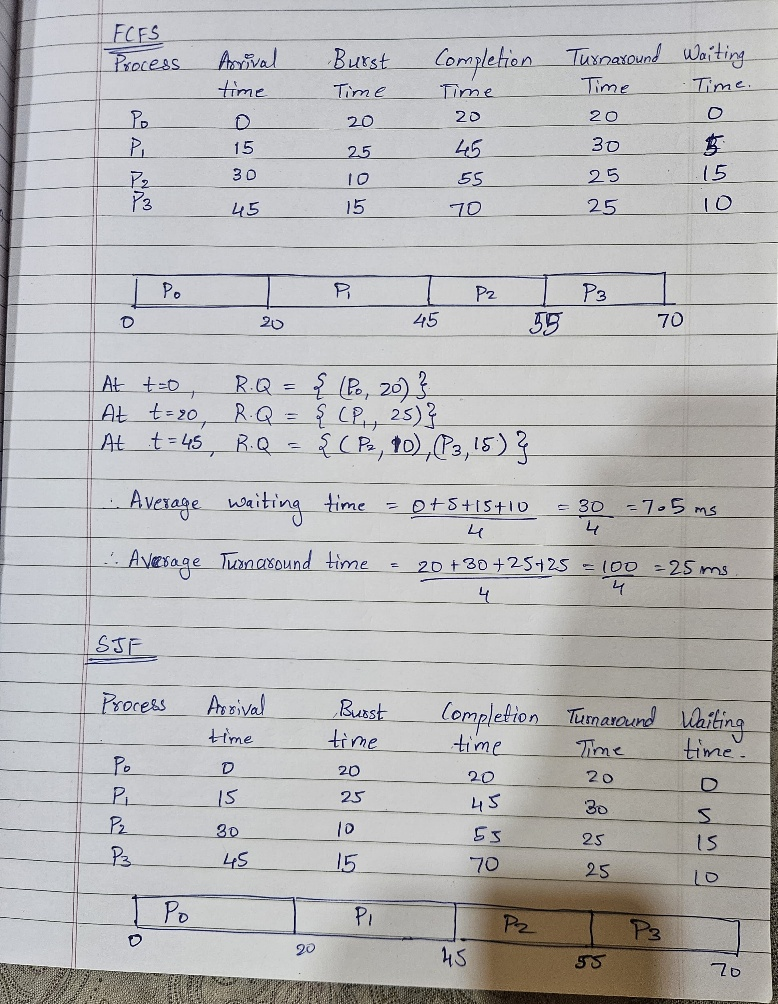 FCFS
Process Arrival Burst Completion Turnaround Waiting
time Time Time Time Time.
P0 0 20 20 20 0
P1 15 25 45 30 5
P2 30 10 55 25 15
P3 45 15 70 25 10
P0 P1 P2 P3
0 20 45 55 70
At t=0, R.Q = { (P0, 20) }
At t=20, R.Q = { (P1, 25) }
At t=45, R.Q = { (P2, 10), (P3, 15) }
∴ Average waiting time = 0+5+15+10 = 30 = 7.5 ms
4 4
∴ Average Turnaround time = 20+30+25+25 = 100 = 25 ms.
4 4
SJF
Process Arrival Burst Completion Turnaround Waiting
time time time Time time.
P0 0 20 20 20 0
P1 15 25 45 30 5
P2 30 10 55 25 15
P3 45 15 70 25 10
P0 P1 P2 P3
0 20 45 55 70